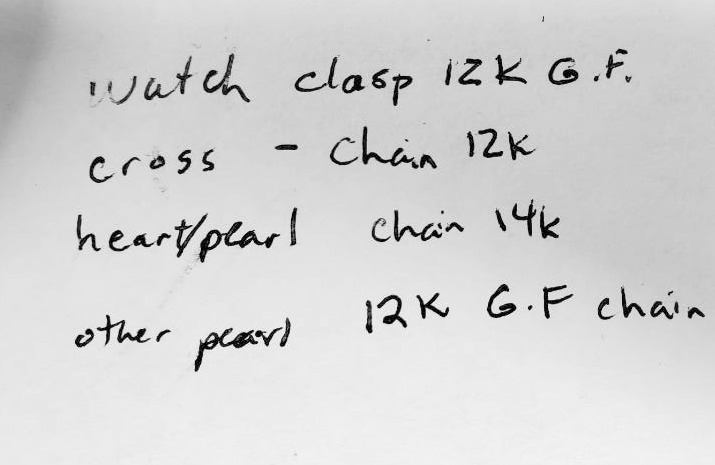 watch clasp 12K G.F.
cross - chain 12K
heart/pearl chain 14k
other pearl 12K G.F chain